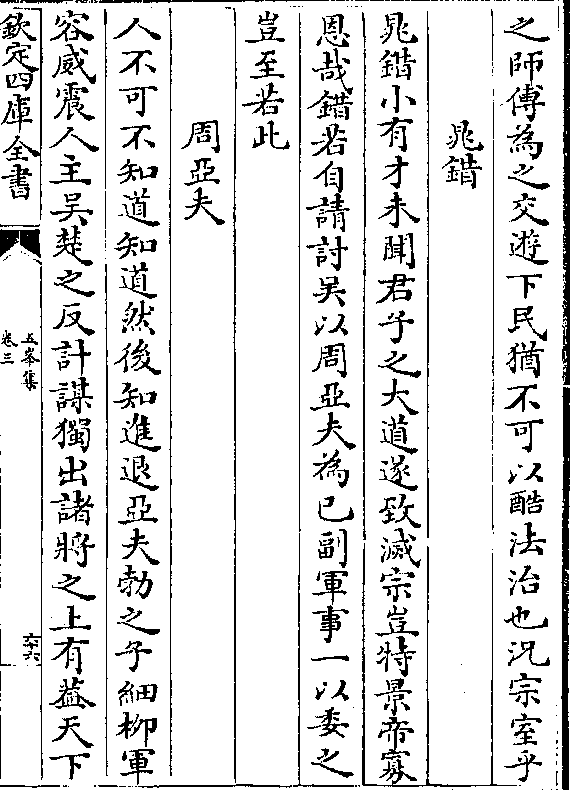 之師傅為之交遊下民猶不可以酷法治也況宗室乎
晁錯
晁錯小有才未聞君子之大道遂致滅宗豈特景帝寡
恩哉錯若自請討吳以周亞夫為已副軍事一以委之
豈至若此
周亞夫
人不可不知道知道然後知進退亞夫勃之子細柳軍
容威震人主吳楚之反計謀獨出諸將之上有益天下
欽定四庫全書
五峯集
卷三
六十六